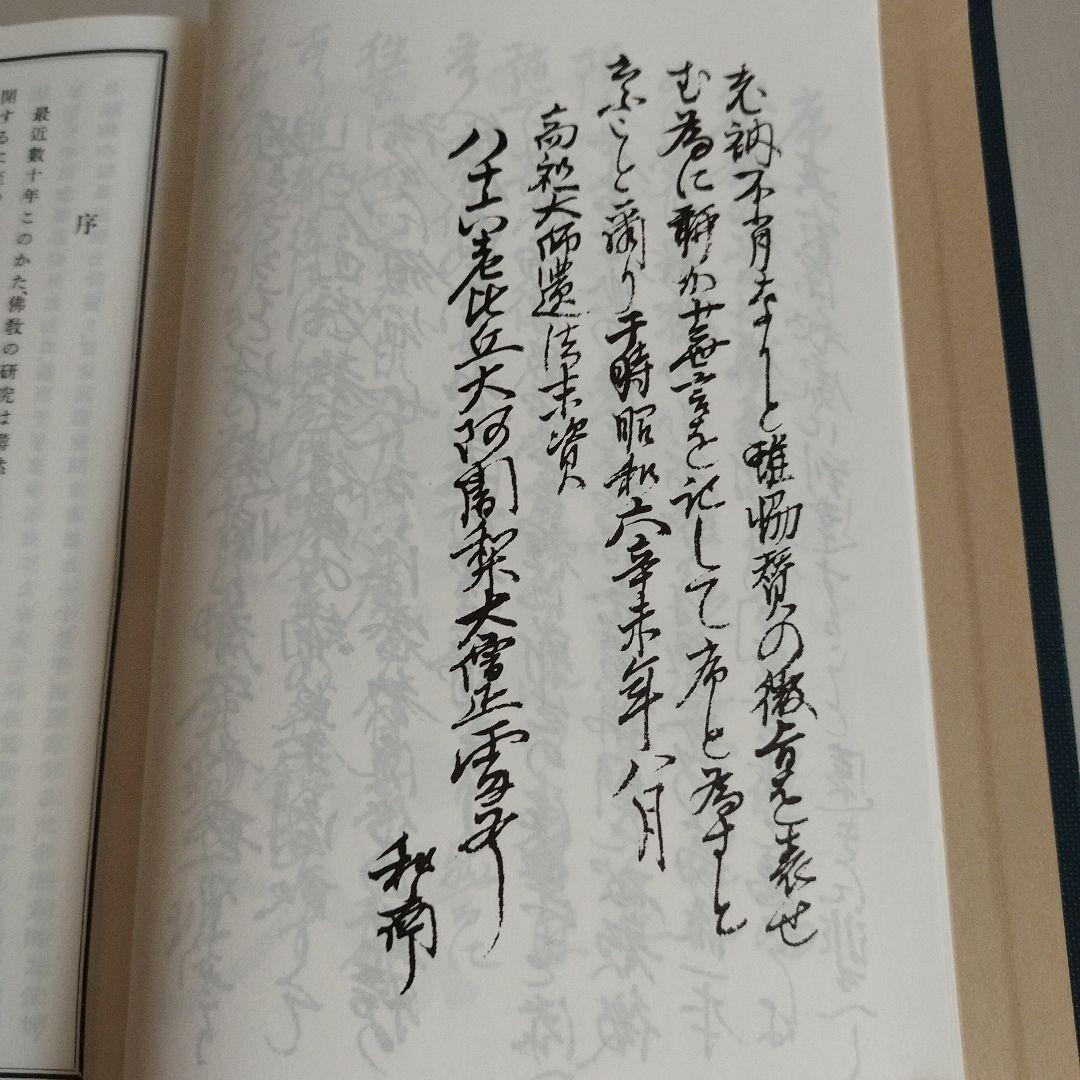 老衲不肖なりと雖協賛の微旨を表せ
む為に聊か世言を記して序と為すと
云ふこと爾り于時昭和六辛未年八月
高祖大師遺法末資
八十六老比丘大阿闍梨大僧正
和南
序
最近數十年このかた、佛敎の硏究は
關するに至